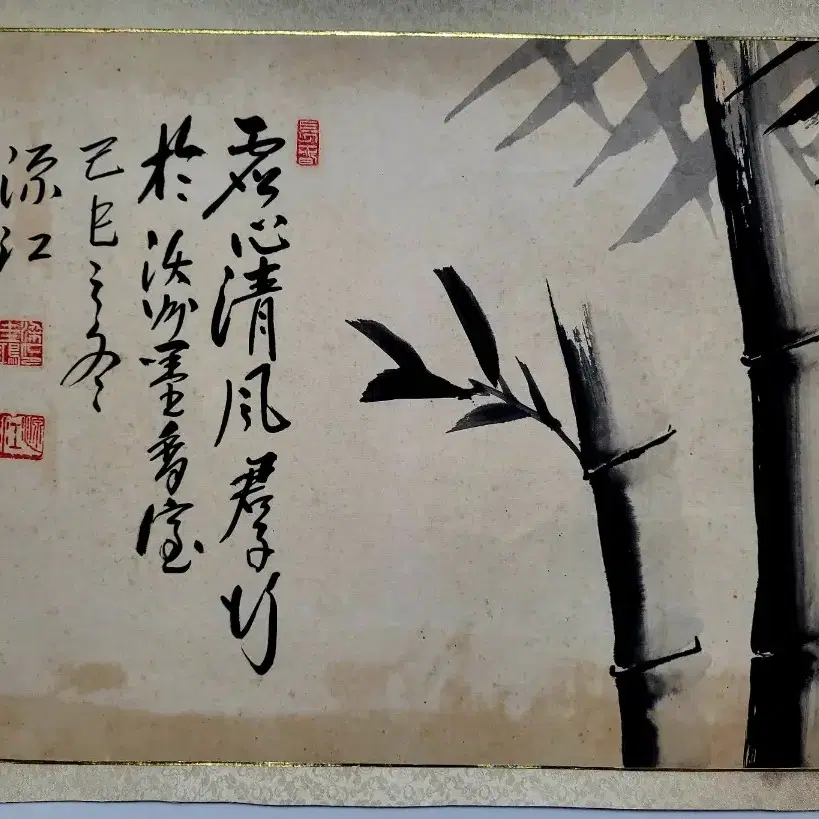 虛心清風君子竹
於沃州墨香室
己巳之冬
源江